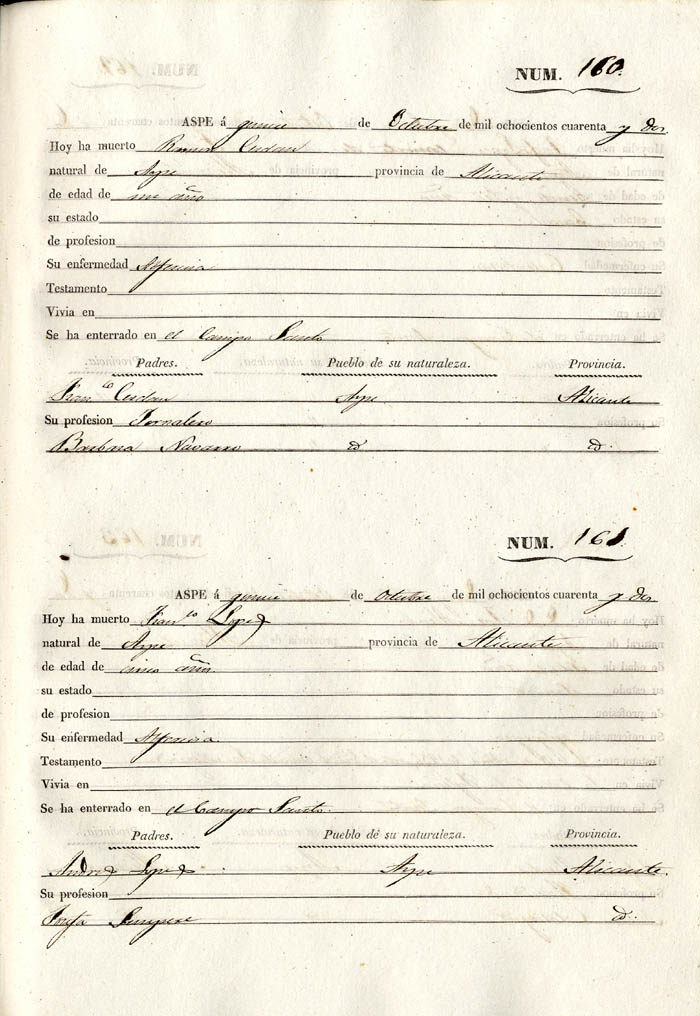 NUM. 160.
ASPE á quince de Octubre de mil ochocientos cuarenta y dos
Hoy ha muerto Ramon Cerdan
natural de Aspe provincia de Alicante
de edad de un año
su estado
de profesion
Su enfermedad
Testamento
Vivia en
Se ha enterrado en el Campo Santo
Padres. Pueblo de su naturaleza. Provincia.
Fran.co Cerdan Aspe Alicante
Su profesion Jornalero
Barbara Navarro id id.
NUM. 161.
ASPE á quince de Octubre de mil ochocientos cuarenta y dos
Hoy ha muerto Fran.co Lopez
natural de Aspe provincia de Alicante
de edad de cinco años
su estado
de profesion
Su enfermedad
Testamento
Vivia en
Se ha enterrado en el Campo Santo.
Padres. Pueblo de su naturaleza. Provincia.
Andres Lopez Aspe Alicante.
Su profesion
Josefa id.